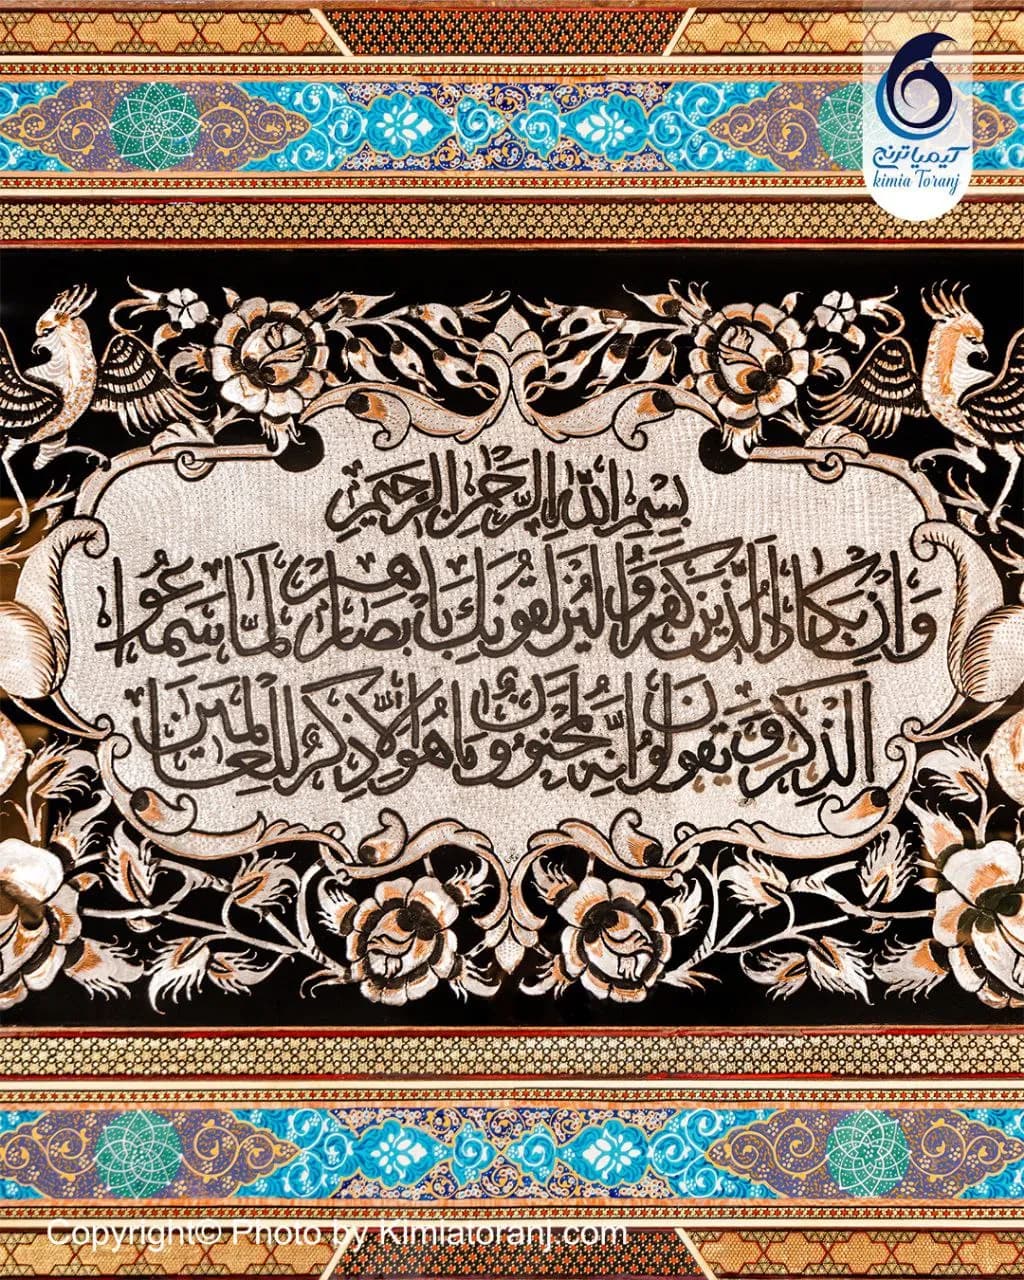 کیمیا ترنج
kimia Toranj
بِسْمِ اللهِ الرَّحْمنِ الرَّحیمِ
وَاِنْ یَکادُ الَّذینَ کَفَرُوا لَیُزْلِقُونَکَ بِاَبْصارِهِمْ لَمّا سَمِعُوا
الذِّکْرَ وَ یَقُولُونَ اِنَّهُ لَمَجْنُونٌ وَ ما هُوَ اِلّا ذِکْرٌ لِلْعالَمینَ
Copyright© Photo by Kimiatoranj.com